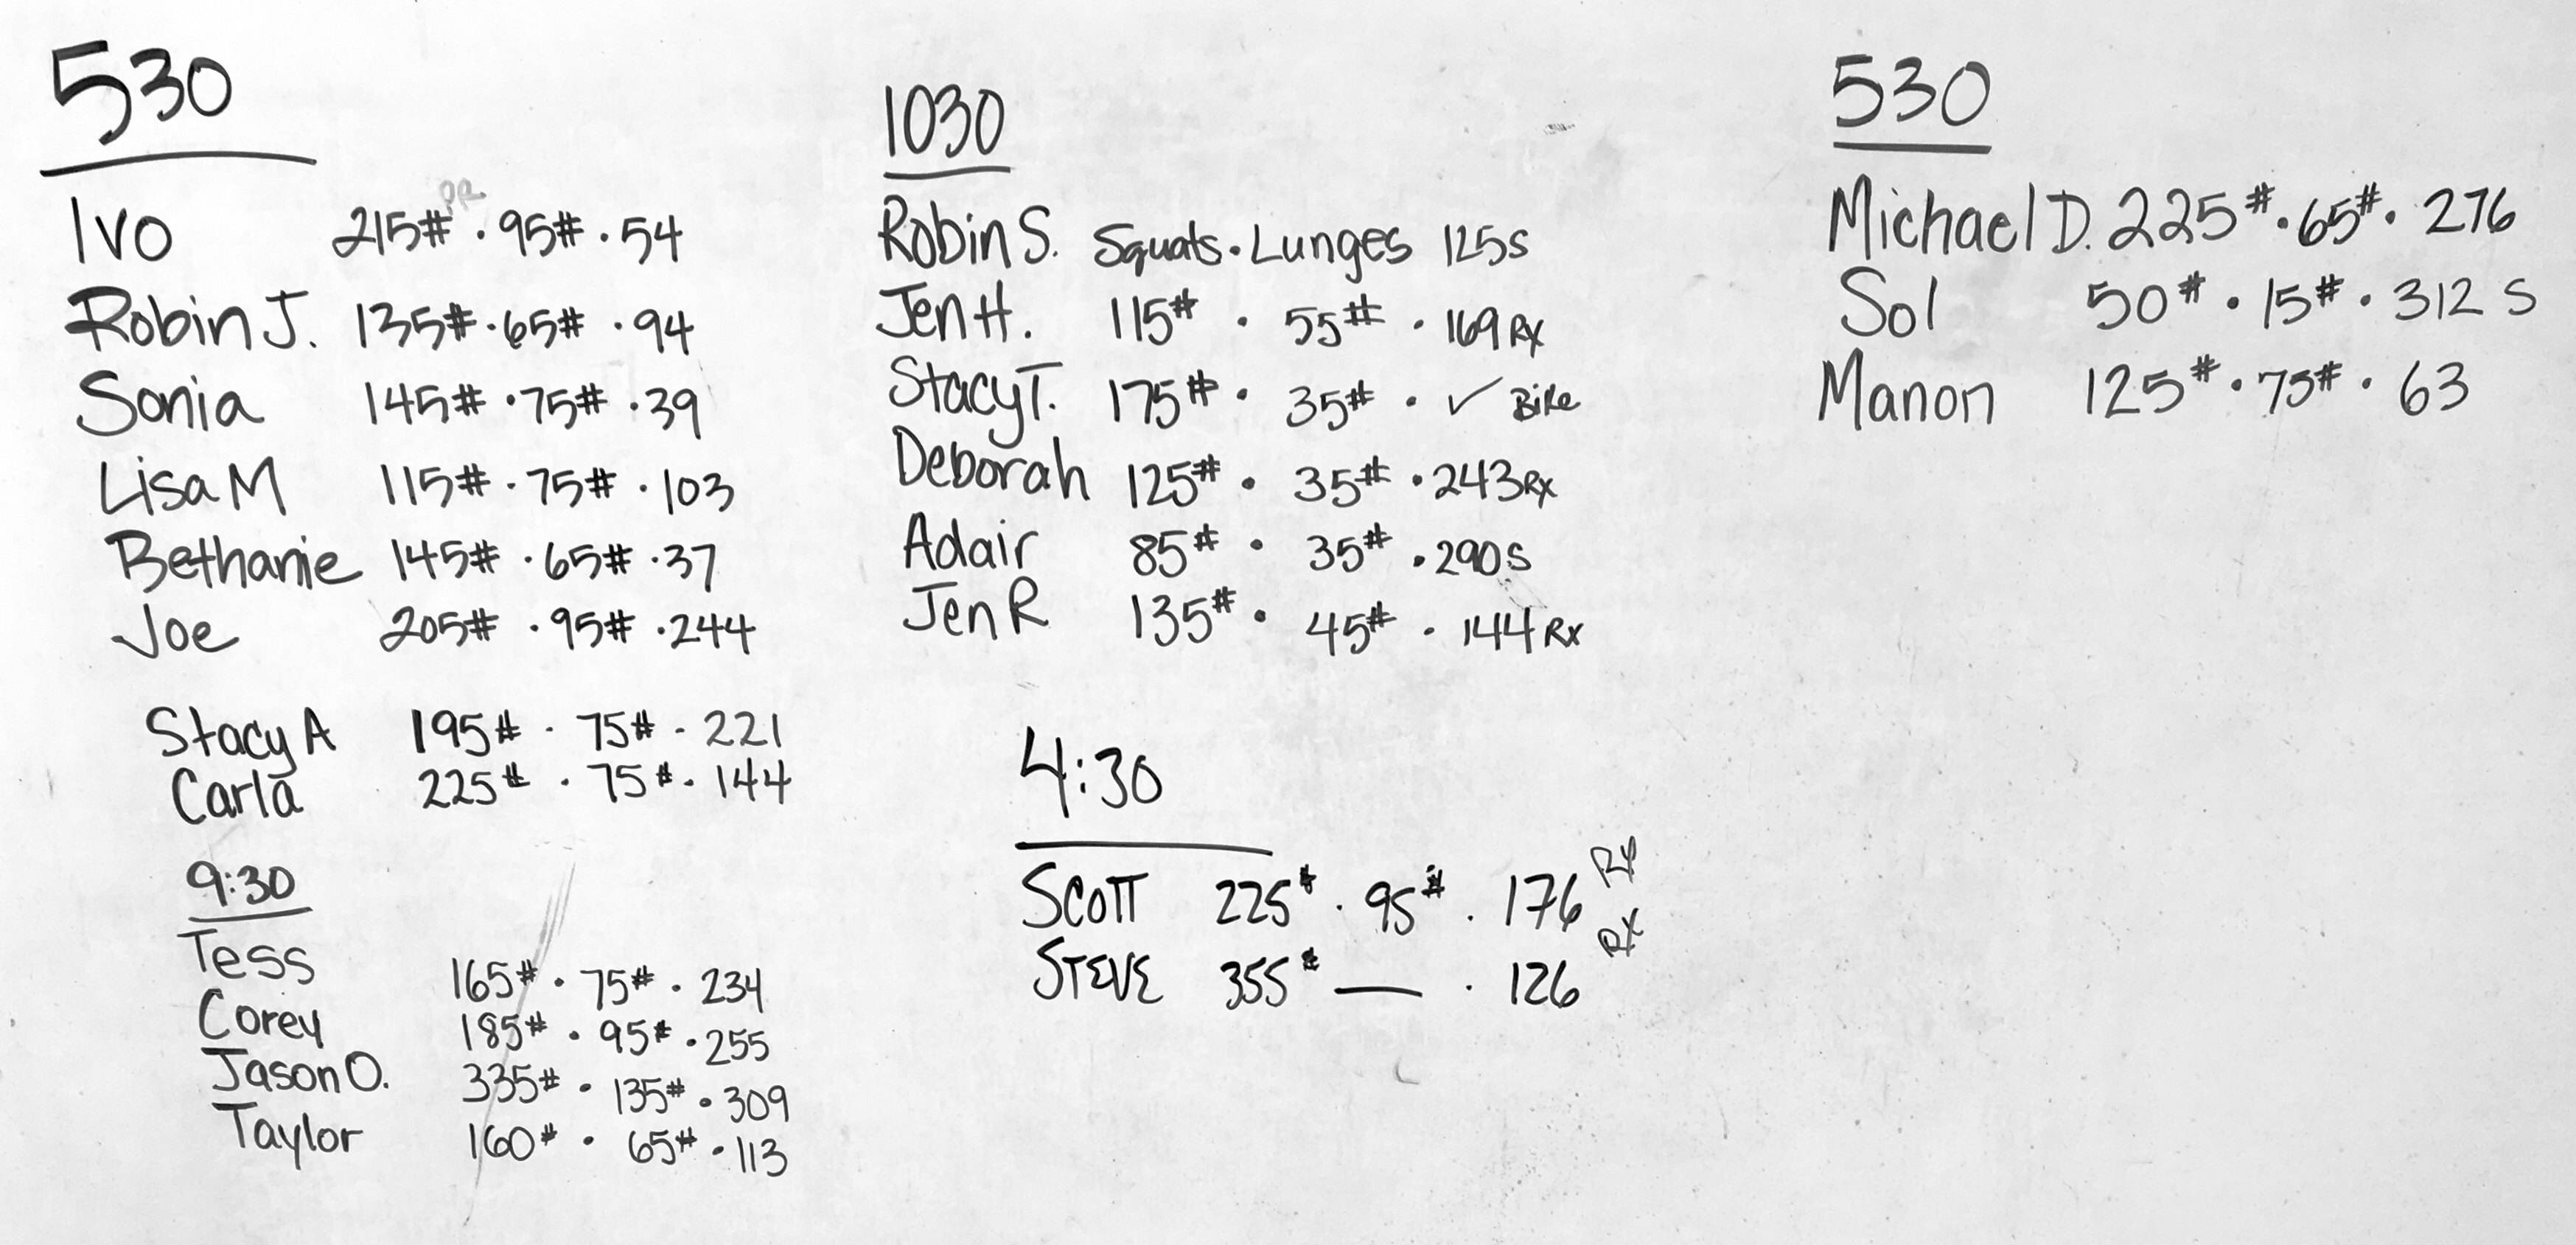 530
PR
Ivo 215# · 95# · 54
Robin J. 135# · 65# · 94
Sonia 145# · 75# · 39
Lisa M 115# · 75# · 103
Bethanie 145# · 65# · 37
Joe 205# · 95# · 244
Stacy A 195# · 75# · 221
Carla 225# · 75# · 144
9:30
Tess 165# · 75# · 234
Corey 185# · 95# · 255
Jason O. 335# · 135# · 309
Taylor 160# · 65# · 113
1030
Robin S. Squats · Lunges 125s
Jen H. 115# · 55# · 169 Rx
Stacy T. 175# · 35# · ✓ Bike
Deborah 125# · 35# · 243 Rx
Adair 85# · 35# · 290 s
Jen R 135# · 45# · 144 Rx
4:30
Scott 225# · 95# · 176 Rx
STEVE 355# — · 126 RX
530
Michael D. 225# · 65# · 276
Sol 50# · 15# · 312 S
Manon 125# · 75# · 63